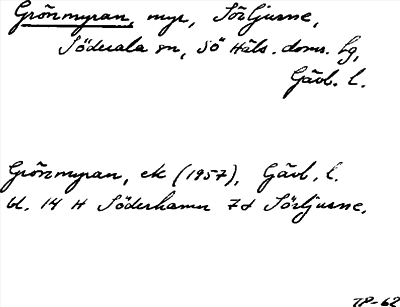 Grönmyran, myr, Sörljusne,
Söderala sn, Sö Häls. doms. lg,
Gävb. l.
Grönmyran, ek (1957), Gävb. l.
bl. 14 H Söderhamn 7d Sörljusne.
TP-62